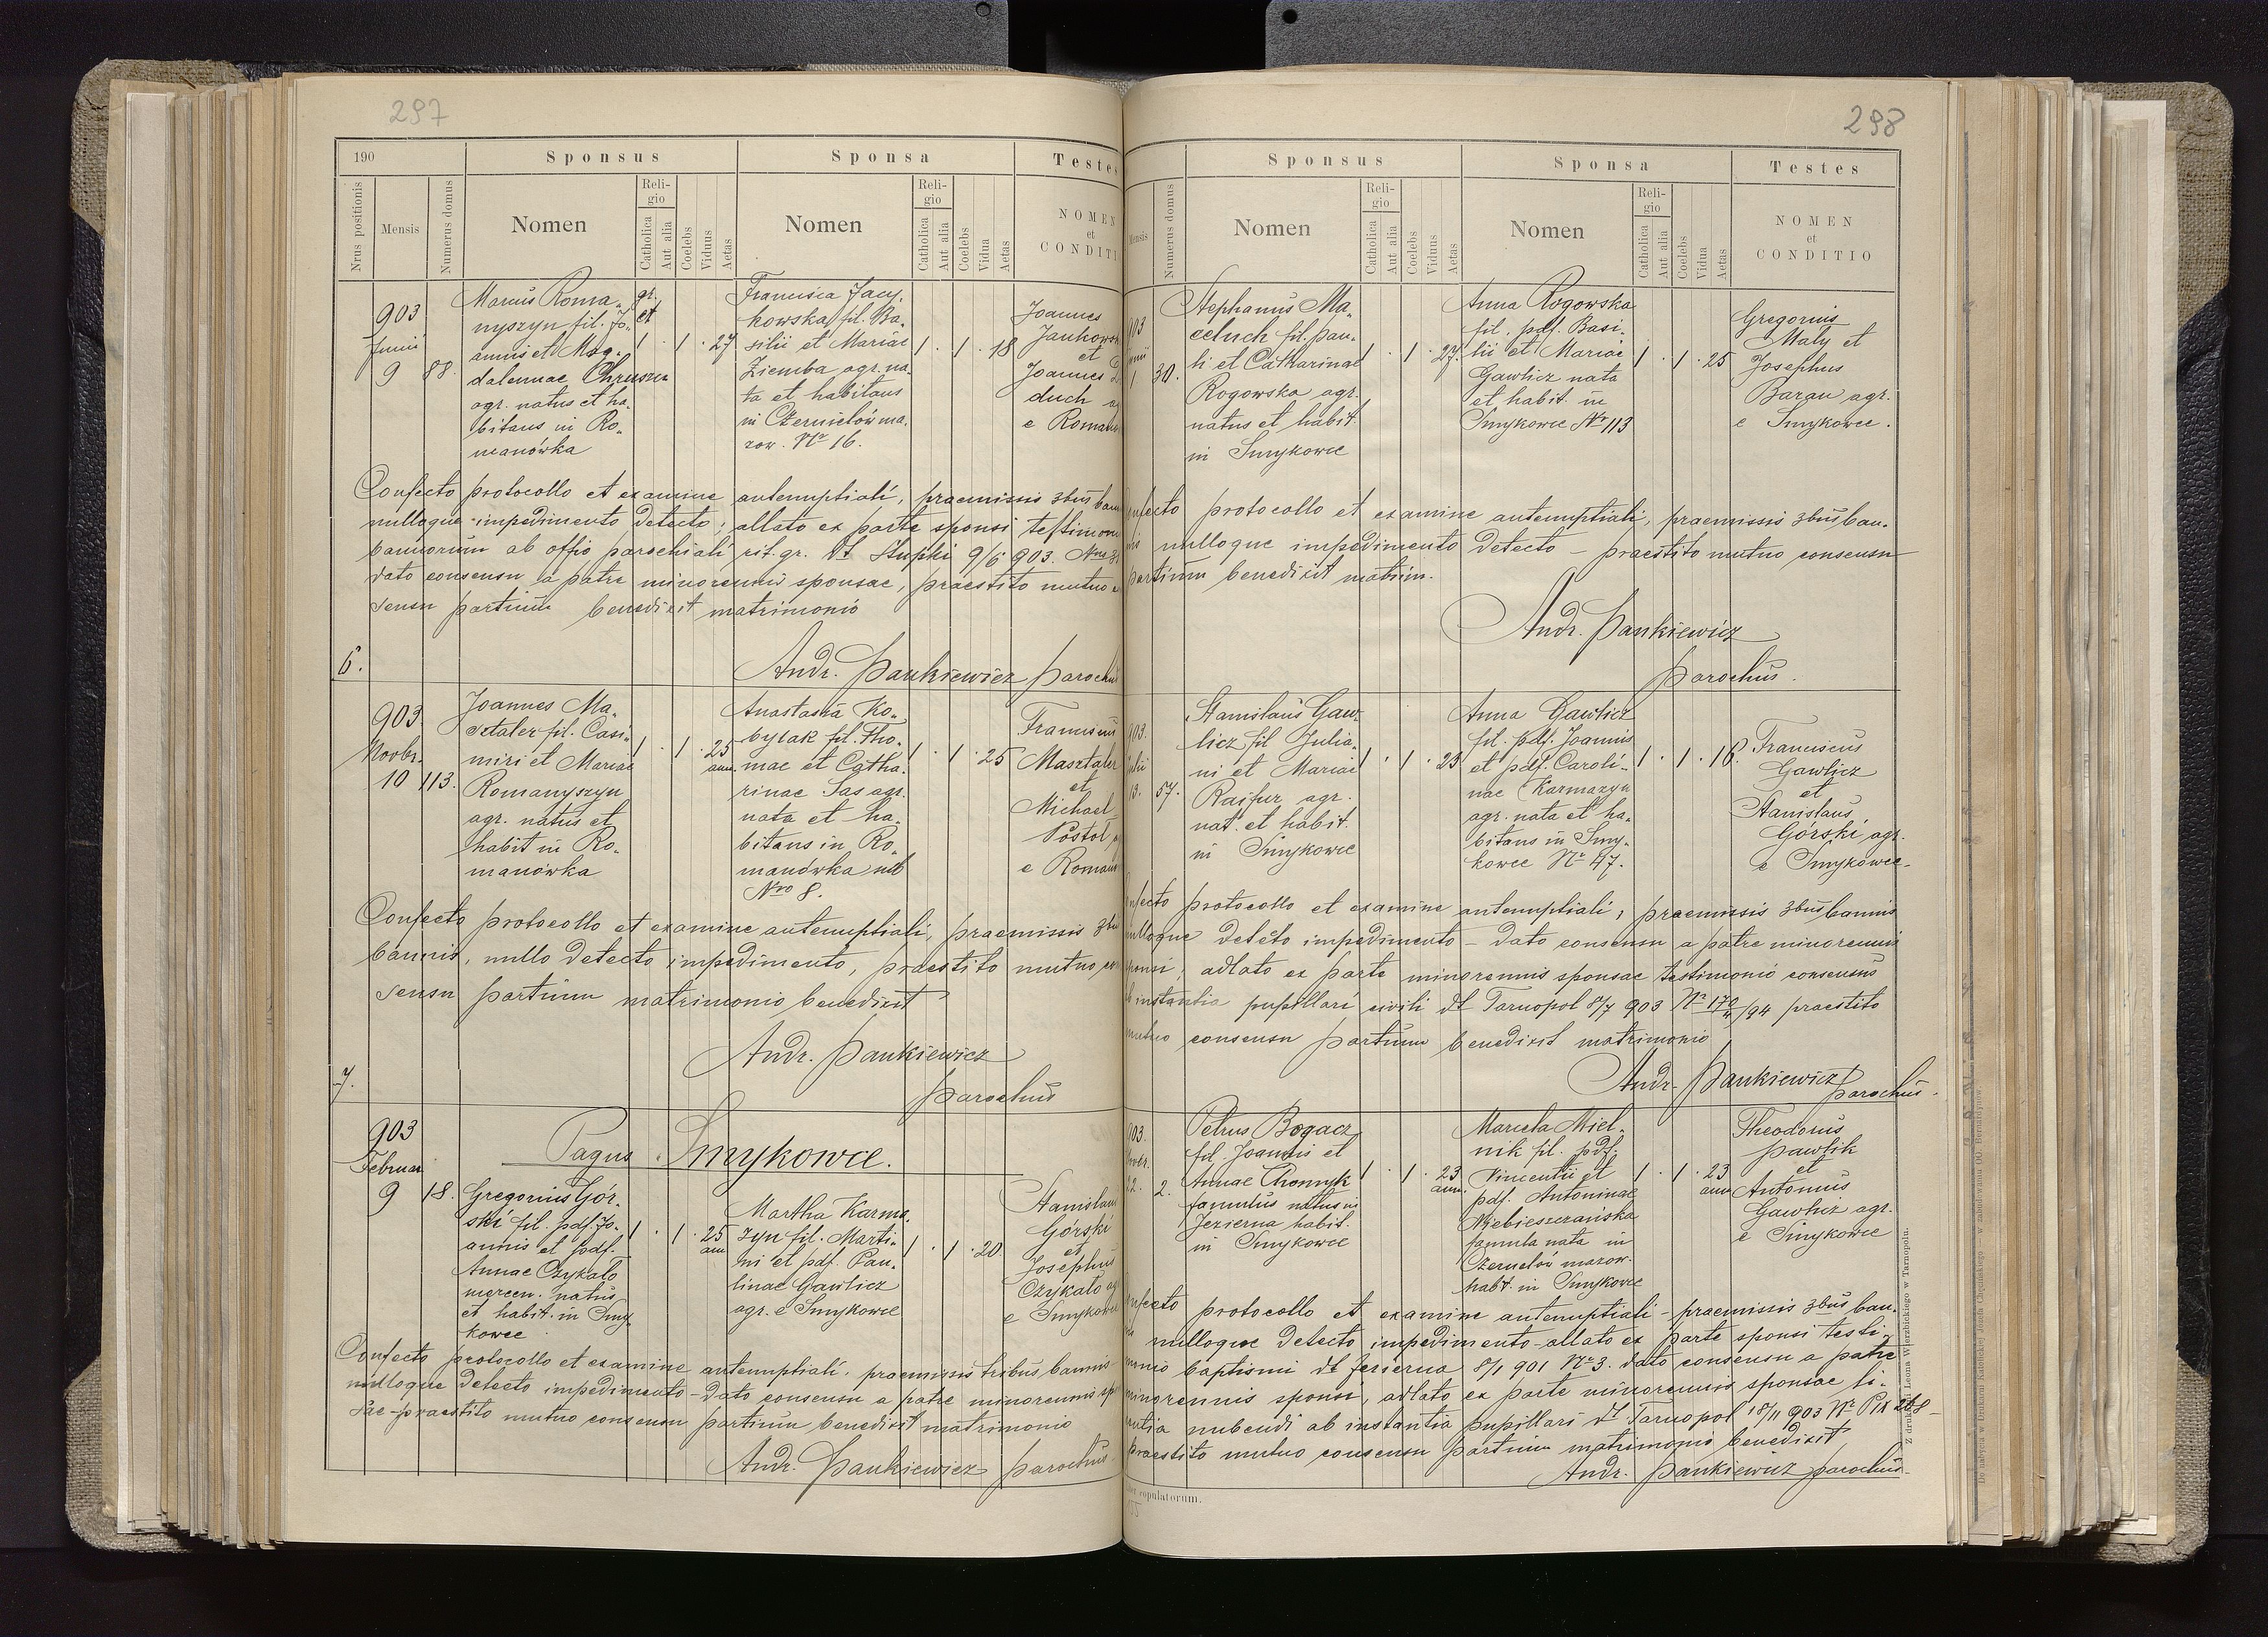 297
190
Sponsus
Sponsa
Testes
Nrus positionis
Mensis
Numerus domus
Nomen
Religio
Catholica
Aut alia
Coelebs
Viduus
Aetas
Nomen
Religio
Catholica
Aut alia
Coelebs
Vidua
Aetas
NOMEN
et
CONDITI
903
Junii
9
88.
Marcus Roma-
nyszyn fil. Jo-
annis et Mag-
dalennae Chruszcz
agr. natus et ha-
bitans in Ro-
manówka
gr.
ct
1 . 1 . 27
Francisca Jacy-
kowska fil. Ba-
silii et Mariae
Ziemba agr. na-
ta et habitans
in Czernielów ma-
zow. Nr 16.
1 . 1 . 18
Joannes
Jankows
et
Joannes
duch
e Roman
Confecto protocollo et examine antenuptiali, praemissis 3bus ban
nulloque impedimento detecto; allato ex parte sponsi testimon
bannorum ab offio parochiali rit. gr. dt Stupki 9/6 903. Nro
dato consensu a patre minorennis sponsae, praestito mutuo
sensu partium benedixit matrimonio
Andr. Pankiewicz parochus
6.
903.
Novbr.
10
113.
Joannes Ma-
sztaler fil. Casi-
miri et Mariae
Romanyszyn
agr. natus et
habit in Ro-
manówka
1 . 1 . 25
ann.
Anastasia Ko-
bylak fil. Tho-
mae et Catha-
rinae Sas agr.
nata et ha-
bitans in Ro-
manówka sub
Nro 8.
1 . 1 . 25
Franciscus
Masztaler
et
Michael
Postol
e Roman
Confecto protocollo et examine antenuptiali, praemissis 3bus
bannis, nullo detecto impedimento, praestito mutuo con
sensu partium matrimonio benedixit
Andr. Pankiewicz
parochus
7.
903
Februar
9
18.
Pagus Smykowce.
Gregorius Gór-
ski fil. pdf. Jo-
annis et pdf.
Annae Czykało
mercen. natus
et habit. in Smy-
kowce
1 . 1 . 25
ann
Martha Karma-
zyn fil. Marti-
ni et pdf. Pau-
linae Gawlicz
agr. e Smykowce
1 . 1 . 20
Stanislaus
Górski
et
Josephus
Czykało
e Smykowce
Confecto protocollo et examine antenuptiali, praemissis tribus bannis
nulloque detecto impedimento - dato consensu a patre minorennis spon
sae - praestito mutuo consensu partium benedixit matrimonio
Andr. Pankiewicz parochus
298
Sponsus
Sponsa
Testes
Mensis
Numerus domus
Nomen
Religio
Catholica
Aut alia
Coelebs
Viduus
Aetas
Nomen
Religio
Catholica
Aut alia
Coelebs
Vidua
Aetas
NOMEN
et
CONDITIO
903
30.
Stephanus Ma-
celuch fil. Pau-
li et Catharinae
Rogowska agr.
natus et habit.
in Smykowce
1 . 1 . 27.
Anna Rogowska
fil. pdf. Basi-
lii et Mariae
Gawlicz nata
et habit. in
Smykowce Nr 113
1 . 1 . 25
Gregorius
Maly et
Josephus
Baran agr.
e Smykowce.
nfecto protocollo et examine antenuptiali, praemissis 3bus ban-
nis nulloque impedimento detecto - praestito mutuo consensu
partium benedixit matrim.
Andr. Pankiewicz
parochus.
903.
Julii
13.
57.
Stanislaus Gaw-
licz fil Julia-
ni et Mariae
Raifur agr.
nat. et habit.
in Smykowce
1 . 1 . 23
Anna Gawlicz
fil. pdf. Joannis
et pdf. Caroli-
nae Karmazyn
agr. nata et ha-
bitans in Smy-
kowce Nr 47.
1 . 1 . 16.
Franciscus
Gawlicz
et
Stanislaus
Górski agr.
e Smykowce
nfecto protocollo et examine antenuptiali, praemissis 3bus bannis
nulloque detecto impedimento - dato consensu a patre minorennis
sponsi, adlato ex parte minorennis sponsae testimonio consensus
b instantia pupillari civili dt Tarnopol 8/7 903 Nr 170/4/94 praestito
mutuo consensu partium benedixit matrimonio
Andr. Pankiewicz
parochus.
903.
22.
2.
Petrus Bogacz
fil. Joannis et
Annae Chomyk
famulus natus in
Jezierna habit.
in Smykowce
1 . 1 . 23
ann.
Mariela Miel-
nik fil. pdf.
Vincentii et
pdf. Antoninae
Niebieszczańska
famula nata in
Czernielów mazow.
habit. in Smykowce
1 . 1 . 23
ann
Theodorus
Pawlik
et
Antonius
Gawlicz agr.
e Smykowce
nfecto protocollo et examine antenuptiali - praemissis 3bus ban-
nis nulloque detecto impedimento - allato ex parte sponsi testi-
monio baptismi dt Jezierna 8/1 901 Nr 3. dato consensu a patre
minorennis sponsi, adlato ex parte minorennis sponsae li-
centia nubendi ab instantia pupillari dt Tarnopol 18/11 903 Nr P IX 208
praestito mutuo consensu partium matrimonio benedixit
Andr. Pankiewicz parochus
copulatorum.
Z druk. Leona Wierzbickiego w Tarnopolu.